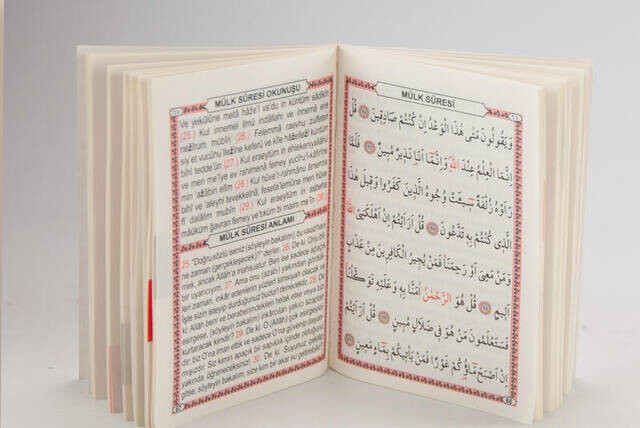 MÜLK SÛRESİ OKUNUŞU
Ve yekûlûne metâ hâžel va'du in küntüm sâdikîn
(25.) Kul innemel ılmü ındallahi ve innemâ ene
nežîrum mübîn (26.) Felemmâ raevhu zulfeten
sîy'et vucûhu llezîne keferû ve kîle hâžellezî küntüm
bihî tedde'ûn (27.) Kul eraeytüm in ehlekeniyallahü
ve men me'iye ev rahımenâ femey yucîru'l-kâfirîne
min 'ažâbin elîm (28.) Kul hüve'r-rahmânu âmennâ
bihî ve 'aleyhi tevekkelnâ, feseta'lemûne men hüve
fî dalâlim mübîn (29.) Kul eraeytüm in asbeha
mâüküm ğavran femey ye'tîküm bi maim me'în (30.)
MÜLK SÛRESİ ANLAMI
25. "Doğru sözlü iseniz (söyleyin bakalım), bu vaad hani
ne zaman (gerçekleşecek)?" derler. 26. De ki: O
mek, ancak Allâh'a mahsustur. Ben ise sadece apaçık
bir uyarıcıyım. 27. Ama onu (azabı) yakından gördük
leri zaman, inkâr edenlerin yüzleri simsiyah olacak ve
İşte sizin isteyip durduğunuz budur! denecektir. 28. De
ki: Allâh beni ve beraberimdekileri helak etse veya bizi
esirgese, (söyleyin bakalım) inkârcıları yakıcı azaptan
kurtaracak kimdir? 29. De ki: O (Allâh) çok esirgeyici
dir; biz O'na iman ettik ve sadece O'na güvenip dayan
mışızdır. Siz kimin apaçık bir sapıklık içinde olduğunu
yakında öğreneceksiniz! 30. De ki: Suyunuz çekilip
gitse, söyleyin bakalım, size kim bir akar su getirebilir?
MÜLK SÛRESİ
وَيَقُولُونَ مَتٰى هٰذَا الْوَعْدُ اِنْ كُنْتُمْ صَادِقٖينَ قُلْ
اِنَّمَا الْعِلْمُ عِنْدَ اللّٰهِ وَاِنَّمَٓا اَنَا نَذٖيرٌ مُبٖينٌ فَلَمَّا
رَاَوْهُ زُلْفَةً سٖٓيـَٔتْ وُجُوهُ الَّذٖينَ كَفَرُوا وَقٖيلَ هٰذَا
الَّذٖي كُنْتُمْ بِهٖ تَدَّعُونَ قُلْ اَرَاَيْتُمْ اِنْ اَهْلَكَنِيَ اللّٰهُ
وَمَنْ مَعِيَ اَوْ رَحِمَنَا فَمَنْ يُجٖيرُ الْكَافِرٖينَ مِنْ عَذَابٍ
اَلٖيمٍ قُلْ هُوَ الرَّحْمٰنُ اٰمَنَّا بِهٖ وَعَلَيْهِ تَوَكَّلْنَا
فَسَتَعْلَمُونَ مَنْ هُوَ فٖي ضَلَالٍ مُبٖينٍ قُلْ اَرَاَيْتُمْ
اِنْ اَصْبَحَ مَٓاؤُ۬كُمْ غَوْرًا فَمَنْ يَأْتٖيكُمْ بِمَٓاءٍ مَعٖينٍ